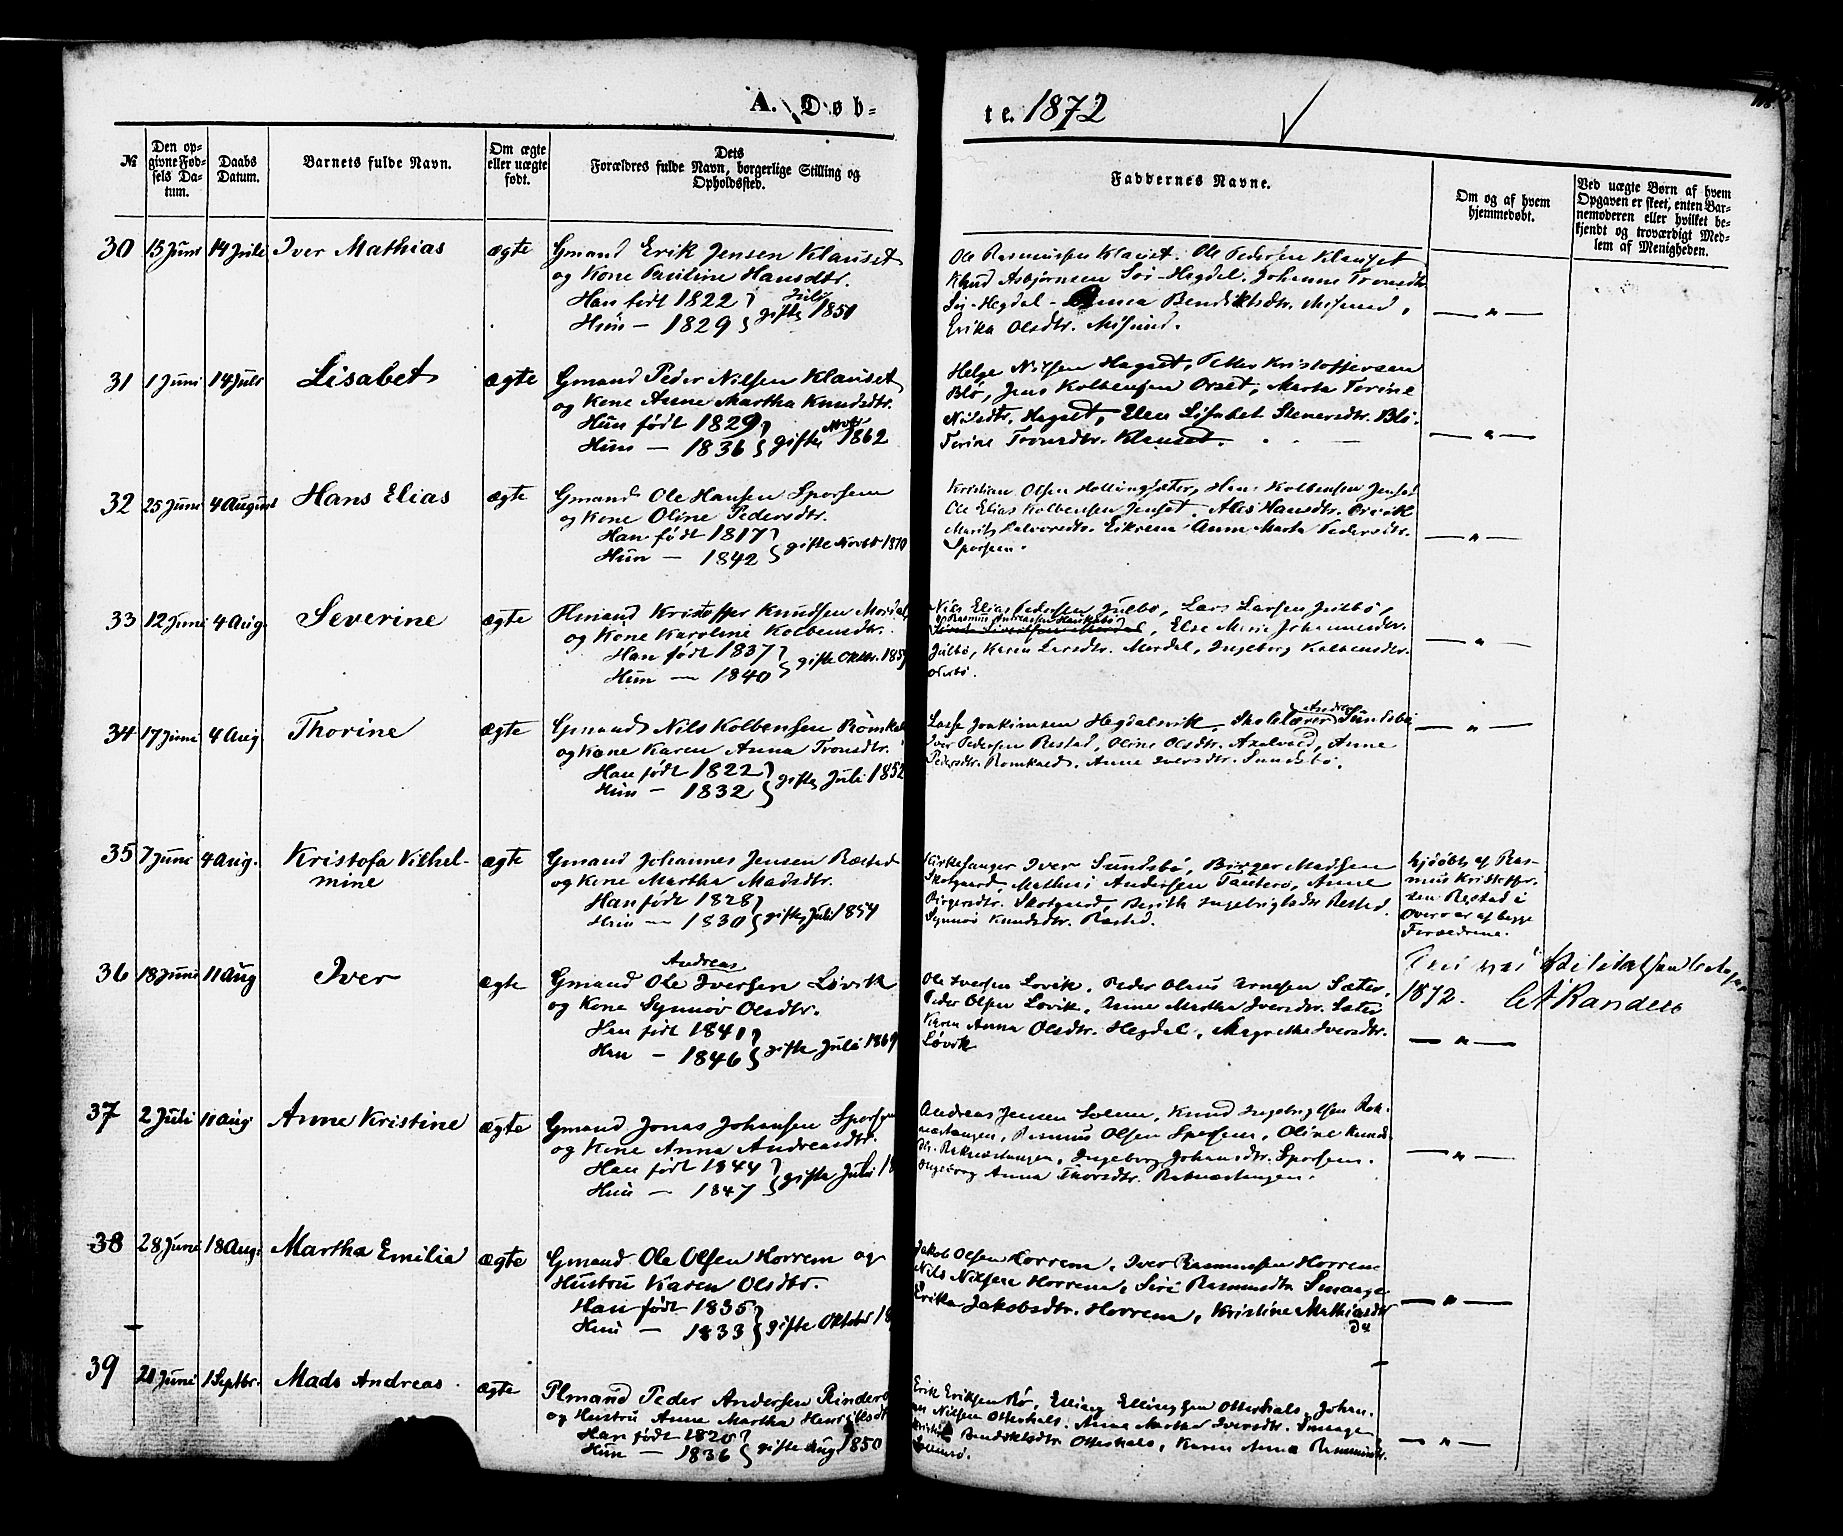 A. Døb-
te. 1872
№
Den op-
givne Fød-
sels Da-
tum.
Daabs
Datum.
Barnets fulde Navn.
Om ægte
eller uægte
født.
Dets
Forældres fulde Navn, borgerlige Stilling og
Opholdssted.
Faddernes Navne.
Om og af hvem
hjemmedøbt.
Ved uægte Børn af hvem
Opgaven er skeet, enten Bar-
nemoderen eller hvilket be-
kjendt og troværdigt Med-
lem af Menigheden.
30 15 Juni 14 Juli Iver Mathias ægte Gmand Erik Jensen Klauset
og Kone Pauline Hansdtr.
Han født 1822
Hun — 1829 gifte Juli 1851
Ole Rasmussen Klauset. Ole Pedersen Klauset
Knud Asbjørnsen Sør-Hegdal, Johanne Tronsdtr.
Sør-Hegdal - Anna Bendiktsdtr. Misund,
Erika Olsdtr. Misund.
— " —
31 1 Juni 14 Juli Lisabet ægte Gmand Peder Nilsen Klauset
og Kone Anne Martha Knudsdtr.
Hun født 1829
Hun — 1836 gifte Novbr 1862
Helge Nilsen Hagset, Petter Kristoffersen
Blø, Jens Kolbensen Orset, Marta Terine
Nilsdtr. Hagset, Elen Lisabet Stenersdtr. Blø.
Terine Tronsdtr. Klauset.
— " —
32 25 Juni 4 August Hans Elias ægte Gmand Ole Hansen Sporsem
og Kone Oline Pedersdtr.
Han født 1817
Hun — 1842 gifte Novbr 1870
Kristian Olsen Hollingsæter, Hans Kolbensen Jenset
Ole Elias Kolbensen Jenset. Ales Hansdtr.
Marit Halvorsdtr. Eikrem Anne Marta Pedersdtr.
Sporsem.
— " —
33 12 Juni 4 Aug. Severine ægte Plmand Kristoffer Knudsen Mordal
og Kone Karoline Kolbensdtr.
Han født 1837
Hun — 1840 gifte Oktbr. 185
Nils Elias Pedersen Julbø, Lars Larsen Julbø,
Rasmus Andreassen
Mordal, Else Marie Johannesdtr.
Julbø, Karen Larsdtr. Mordal, Ingeborg Kolbensdtr.
— " —
34 17 Juni 4 Aug Thorine ægte Gmand Nils Kolbensen Römkal
og Kone Karen Anna Tronsdtr.
Han født 1822
Hun — 1832 gifte Juli 1852
Lasse Joakimsen Hegdalsvik, Skolelærer Andreas Sundsbø
Iver Pedersen Restad, Oline Olsdtr. Axelvold, Anne
Pedersdtr. Romkald, Anne Iversdtr. Sundsbø.
— " —
35 7 Juni 4 Aug. Kristofa Vilhel-
mine ægte Gmand Johannes Jensen Ræstad
og Kone Martha Madsdtr.
Han født 1828
Hun — 1830 gifte Juli 1854
Kirkesanger Iver Sundsbø, Birger Madsen
Skotgaard, Mathias Andersen Tauterø, Anne
Birgersdtr. Skotgaard, Berith Ingebrigtsdtr Restad
Synnøv Knudsdtr. Rastad.
hjdøbt af Ras-
mus Kristoffer-
sen Restad i
Overvær af begge
Forældrene.
36 18 Juni 11 Aug Iver ægte Gmand Ole Andreas Iversen Løvik
og Kone Synnøv Olsdtr.
Han født 1841
Hun — 1846 gifte Juli 1869
Ole Iversen Lovik, Peder Olaus Arnesen Sæter,
Peder Olsen Lovik, Anne Martha Iversdtr. Sæter
Karen Anna Olsdtr. Hegdal, Magrethe Iversdtr.
Løvik
1872. Randers
— " —
37 2 Juli 11 Aug Anne Kristine ægte Gmand Jonas Johansen Sporsem
og Kone Anna Andreasdtr.
Han født 1844
Hun — 1847 gifte Juli 18
Andreas Jensen Solem, Knud Ingebrigtsen Rak-
næstangen, Rasmus Olsen Sporsem, Oline Knuds-
dtr. Raknæstangen, Ingeborg Johansdtr. Sporsem.
Ingeborg Anna Thorsdtr. Raknæstangen.
— " —
38 28 Juni 18 Aug. Martha Emilie ægte Gmand Ole Olsen Horrem og
Hustru Karen Olsdtr.
Han født 1835
Hun — 1833 gifte Oktober 18
Jakob Olsen Horrem, Iver Rasmussen Horrem
Nils Nilsen Horrem, Siri Rasmusdtr Smaage
Erika Jakobsdtr. Horrem, Kristine Mathiasdtr
do
— " —
39 20 Juni 1 Septbr. Mads Andreas ægte Plmand Peder Andersen Rinderø
og Hustru Anne Martha Henriksdtr
Han født 1820
Hun — 1836 gifte Aug 1850
Erik Eriksen Rø, Elling Ellingsen Otterhals, Johan-
nes Nilsen Otterhals. Anne Martha Iversdtr. Smaage
Bendiktsdtr Otterhals, Karen Anna Rasmusdtr.
— " —